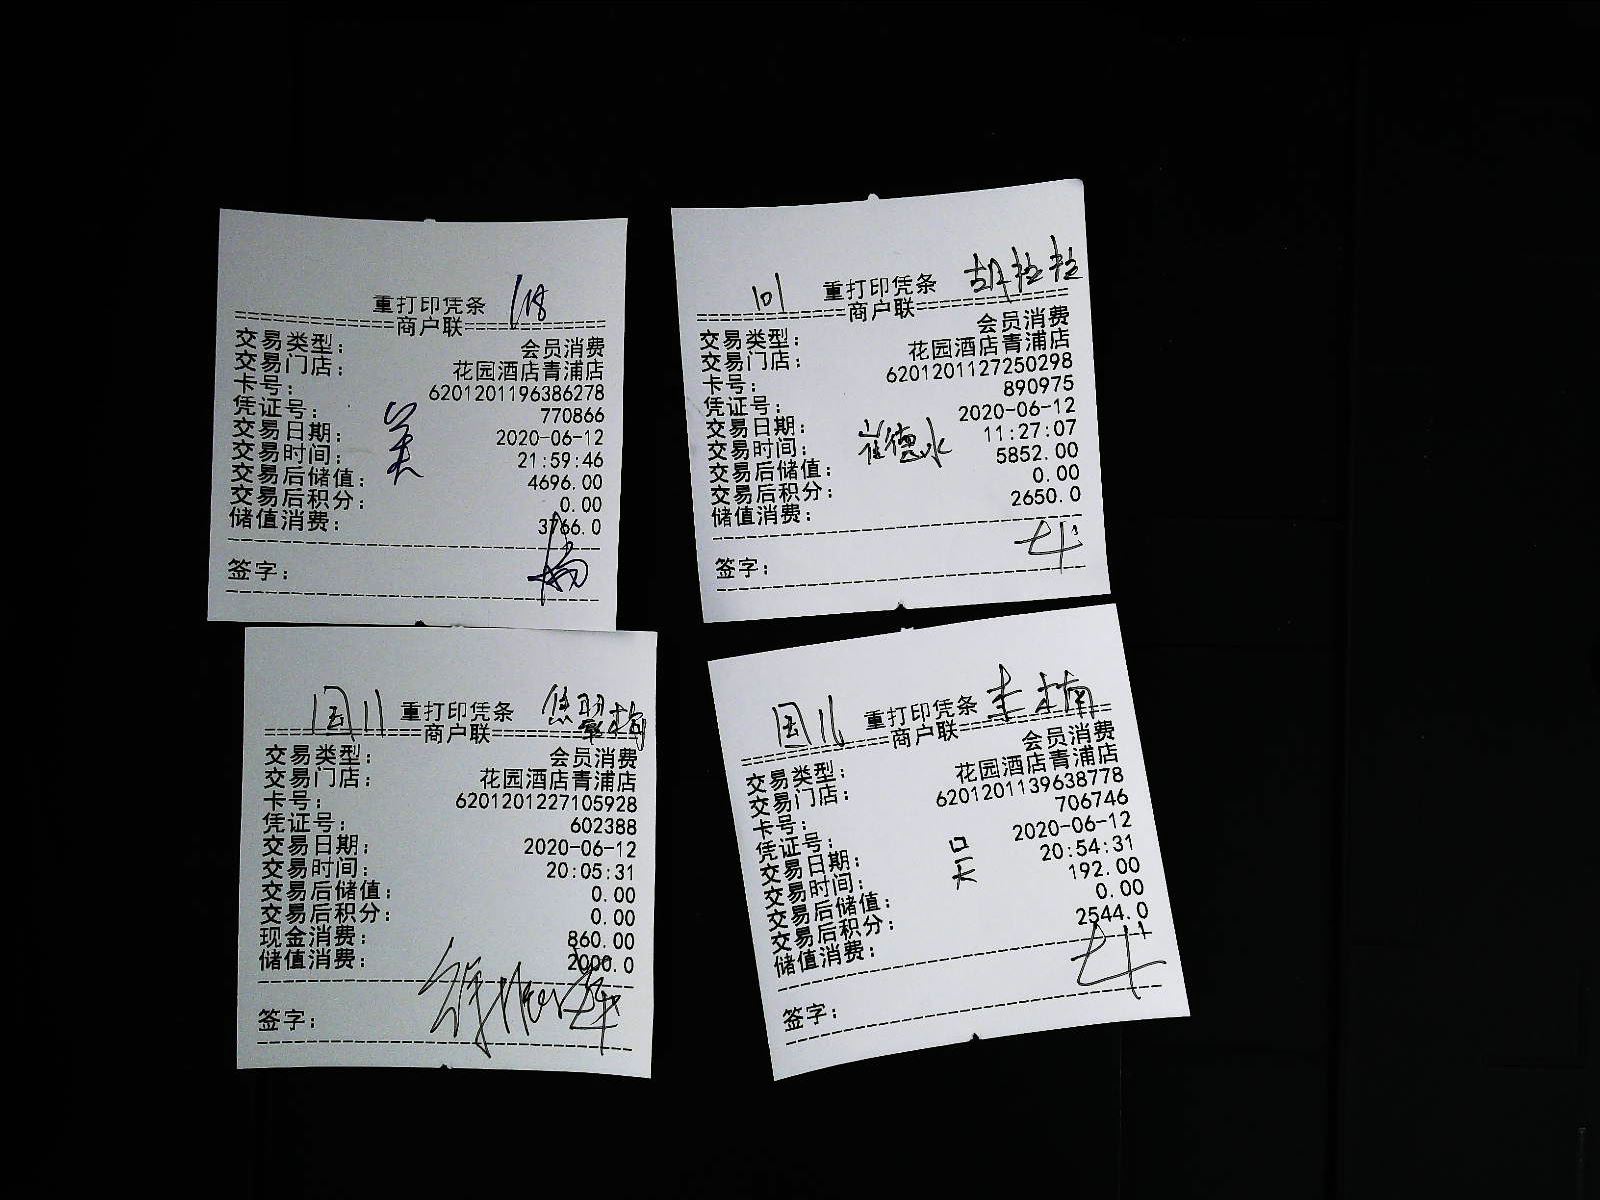 重打印凭条 118
商户联
交易类型： 会员消费
交易门店： 花园酒店青浦店
卡号： 6201201196386278
凭证号： 770866
交易日期： 2020-06-12
交易时间： 21:59:46
交易后储值： 4696.00
交易后积分： 0.00
储值消费： 3766.0
签字：
101 重打印凭条 胡拉拉
商户联
交易类型： 会员消费
交易门店： 花园酒店青浦店
卡号： 6201201127250298
凭证号： 890975
交易日期： 2020-06-12
交易时间： 11:27:07
崔德水
交易后储值： 5852.00
交易后积分： 0.00
储值消费： 2650.0
签字：
重打印凭条
商户联
交易类型： 会员消费
交易门店： 花园酒店青浦店
卡号： 6201201227105928
凭证号： 602388
交易日期： 2020-06-12
交易时间： 20:05:31
交易后储值： 0.00
交易后积分： 0.00
现金消费： 860.00
储值消费： 2000.0
签字：
重打印凭条
商户联
交易类型： 会员消费
交易门店： 花园酒店青浦店
卡号： 6201201139638778
凭证号： 706746
交易日期： 2020-06-12
交易时间： 20:54:31
交易后储值： 192.00
交易后积分： 0.00
储值消费： 2544.0
签字：